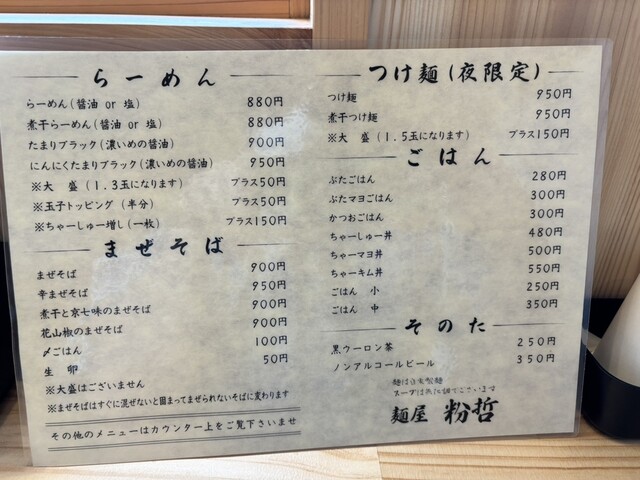 らーめん
らーめん(醤油 or 塩) 880円
煮干らーめん(醤油 or 塩) 880円
たまりブラック(濃いめの醤油) 900円
にんにくたまりブラック(濃いめの醤油) 950円
※大 盛(1.3玉になります) プラス50円
※玉子トッピング(半分) プラス50円
※ちゃーしゅー増し(一枚) プラス150円
まぜそば
まぜそば 900円
辛まぜそば 950円
煮干と京七味のまぜそば 900円
花山椒のまぜそば 900円
〆ごはん 100円
生 卵 50円
※大盛はございません
※まぜそばはすぐに混ぜないと固まってまぜられないそばに変わります
その他のメニューはカウンター上をご覧下さいませ
つけ麺(夜限定)
つけ麺 950円
煮干つけ麺 950円
※大 盛(1.5玉になります) プラス150円
ごはん
ぶたごはん 280円
ぶたマヨごはん 300円
かつおごはん 300円
ちゃーしゅー丼 480円
ちゃーマヨ丼 500円
ちゃーキム丼 550円
ごはん 小 250円
ごはん 中 350円
そのた
黒ウーロン茶 250円
ノンアルコールビール 350円
麺は自家製麺
スープは無化調でございます
麺屋 粉哲